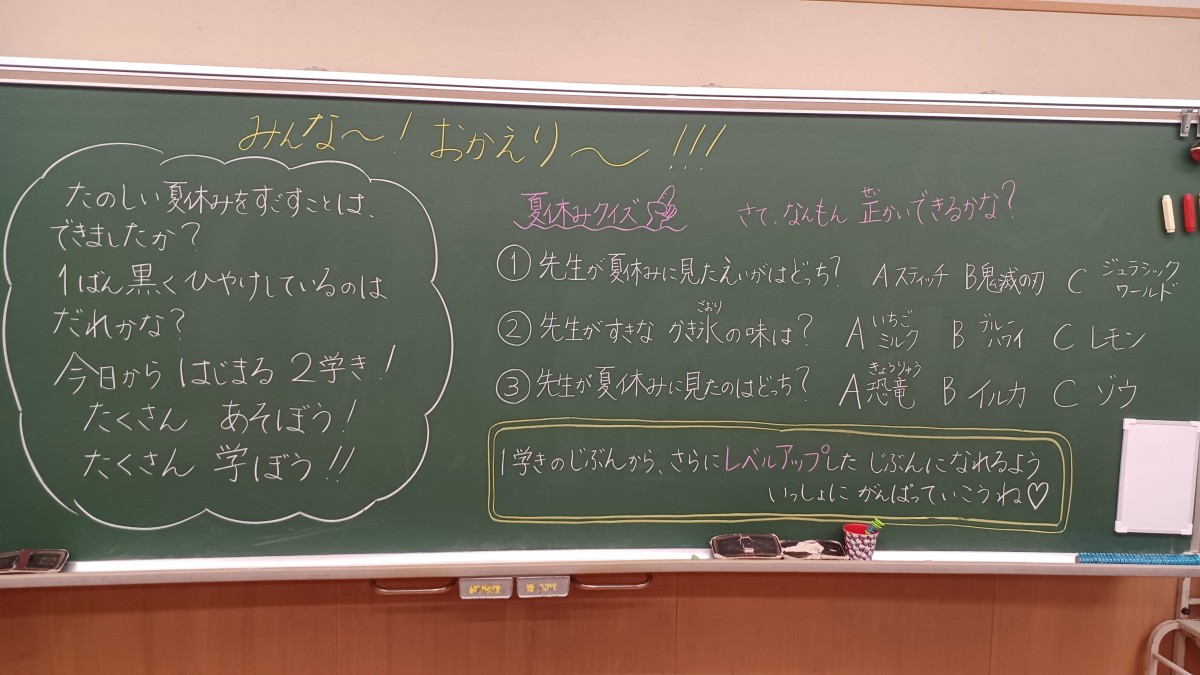 みんな～！おかえり～!!!
たのしい夏休みをすごすことは、
できましたか？
1ばん黒くひやけしているのは
だれかな？
今日から はじまる 2学き！
たくさん あそぼう！
たくさん 学ぼう!!
夏休みクイズ さて、なんもん 正かいできるかな？
せい
① 先生が夏休みに見たえいがはどっち？ A スティッチ B 鬼滅の刃 C ジュラシックワールド
② 先生がすきな かき氷の味は？ A いちごミルク B ブルーハワイ C レモン
こおり
③ 先生が夏休みに見たのはどっち？ A 恐竜 B イルカ C ゾウ
きょうりゅう
1学きのじぶんから、さらにレベルアップした じぶんになれるよう
いっしょに がんばっていこうね♡